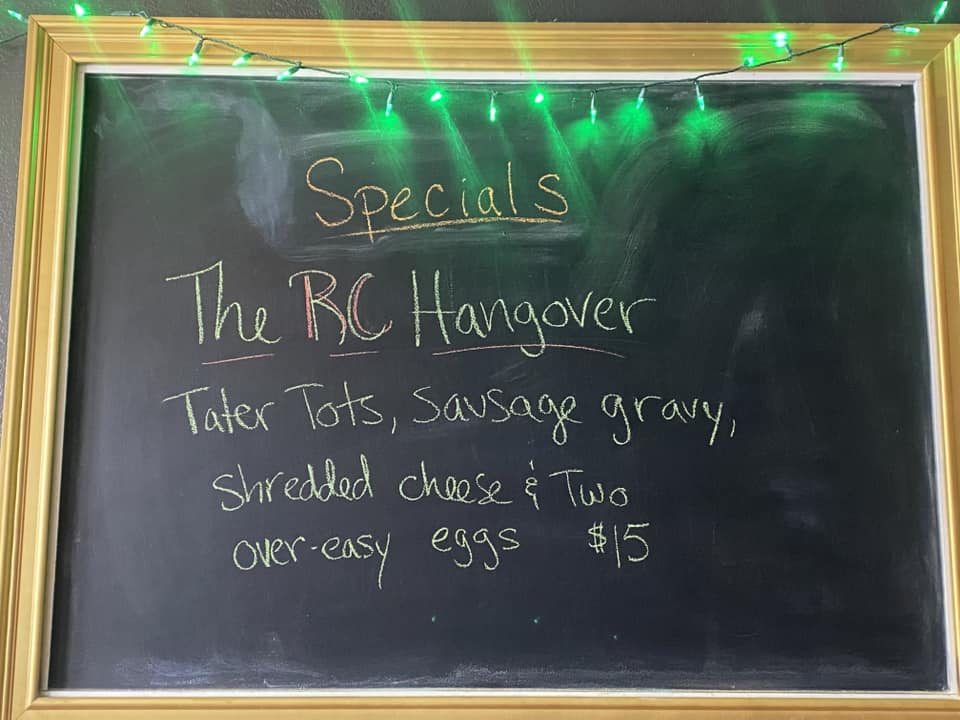 Specials
The RC Hangover
Tater Tots, Sausage gravy,
shredded cheese & Two
over-easy eggs $15